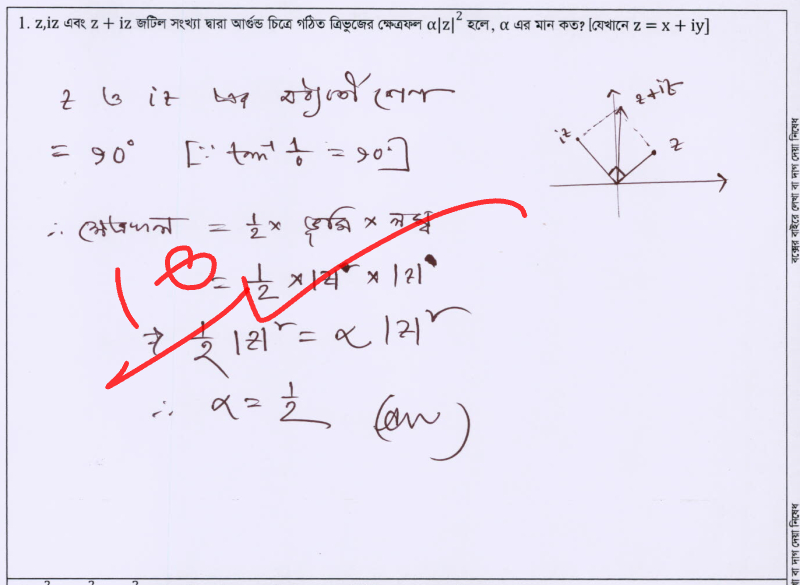 1. z,iz এবং z + iz জটিল সংখ্যা দ্বারা আর্গন্ড চিত্রে গঠিত ত্রিভুজের ক্ষেত্রফল α|z|² হলে, α এর মান কত? [যেখানে z = x + iy]
z ও iz এর মধ্যবর্তী কোণ
= 90° [∵ tan⁻¹ 1/0 = 90°]
∴ ক্ষেত্রফল = 1/2 × ভূমি × লম্ব
= 1/2 × |z| × |z|
⇒ 1/2 |z|² = α |z|²
∴ α = 1/2 (Ans)
z+iz
iz
z
বক্সের বাইরে লেখা বা দাগ দেয়া নিষেধ
বা দাগ দেয়া নিষেধ